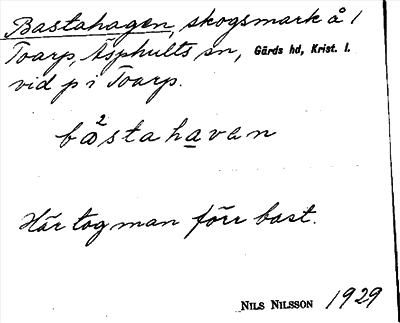 Bastahagen, skogsmark å 1
Toarp, Äsphults sn, Gärds hd, Krist. l.
vid p i Toarp.
ba²stahavan
Här tog man förr bast.
NILS NILSSON 1929